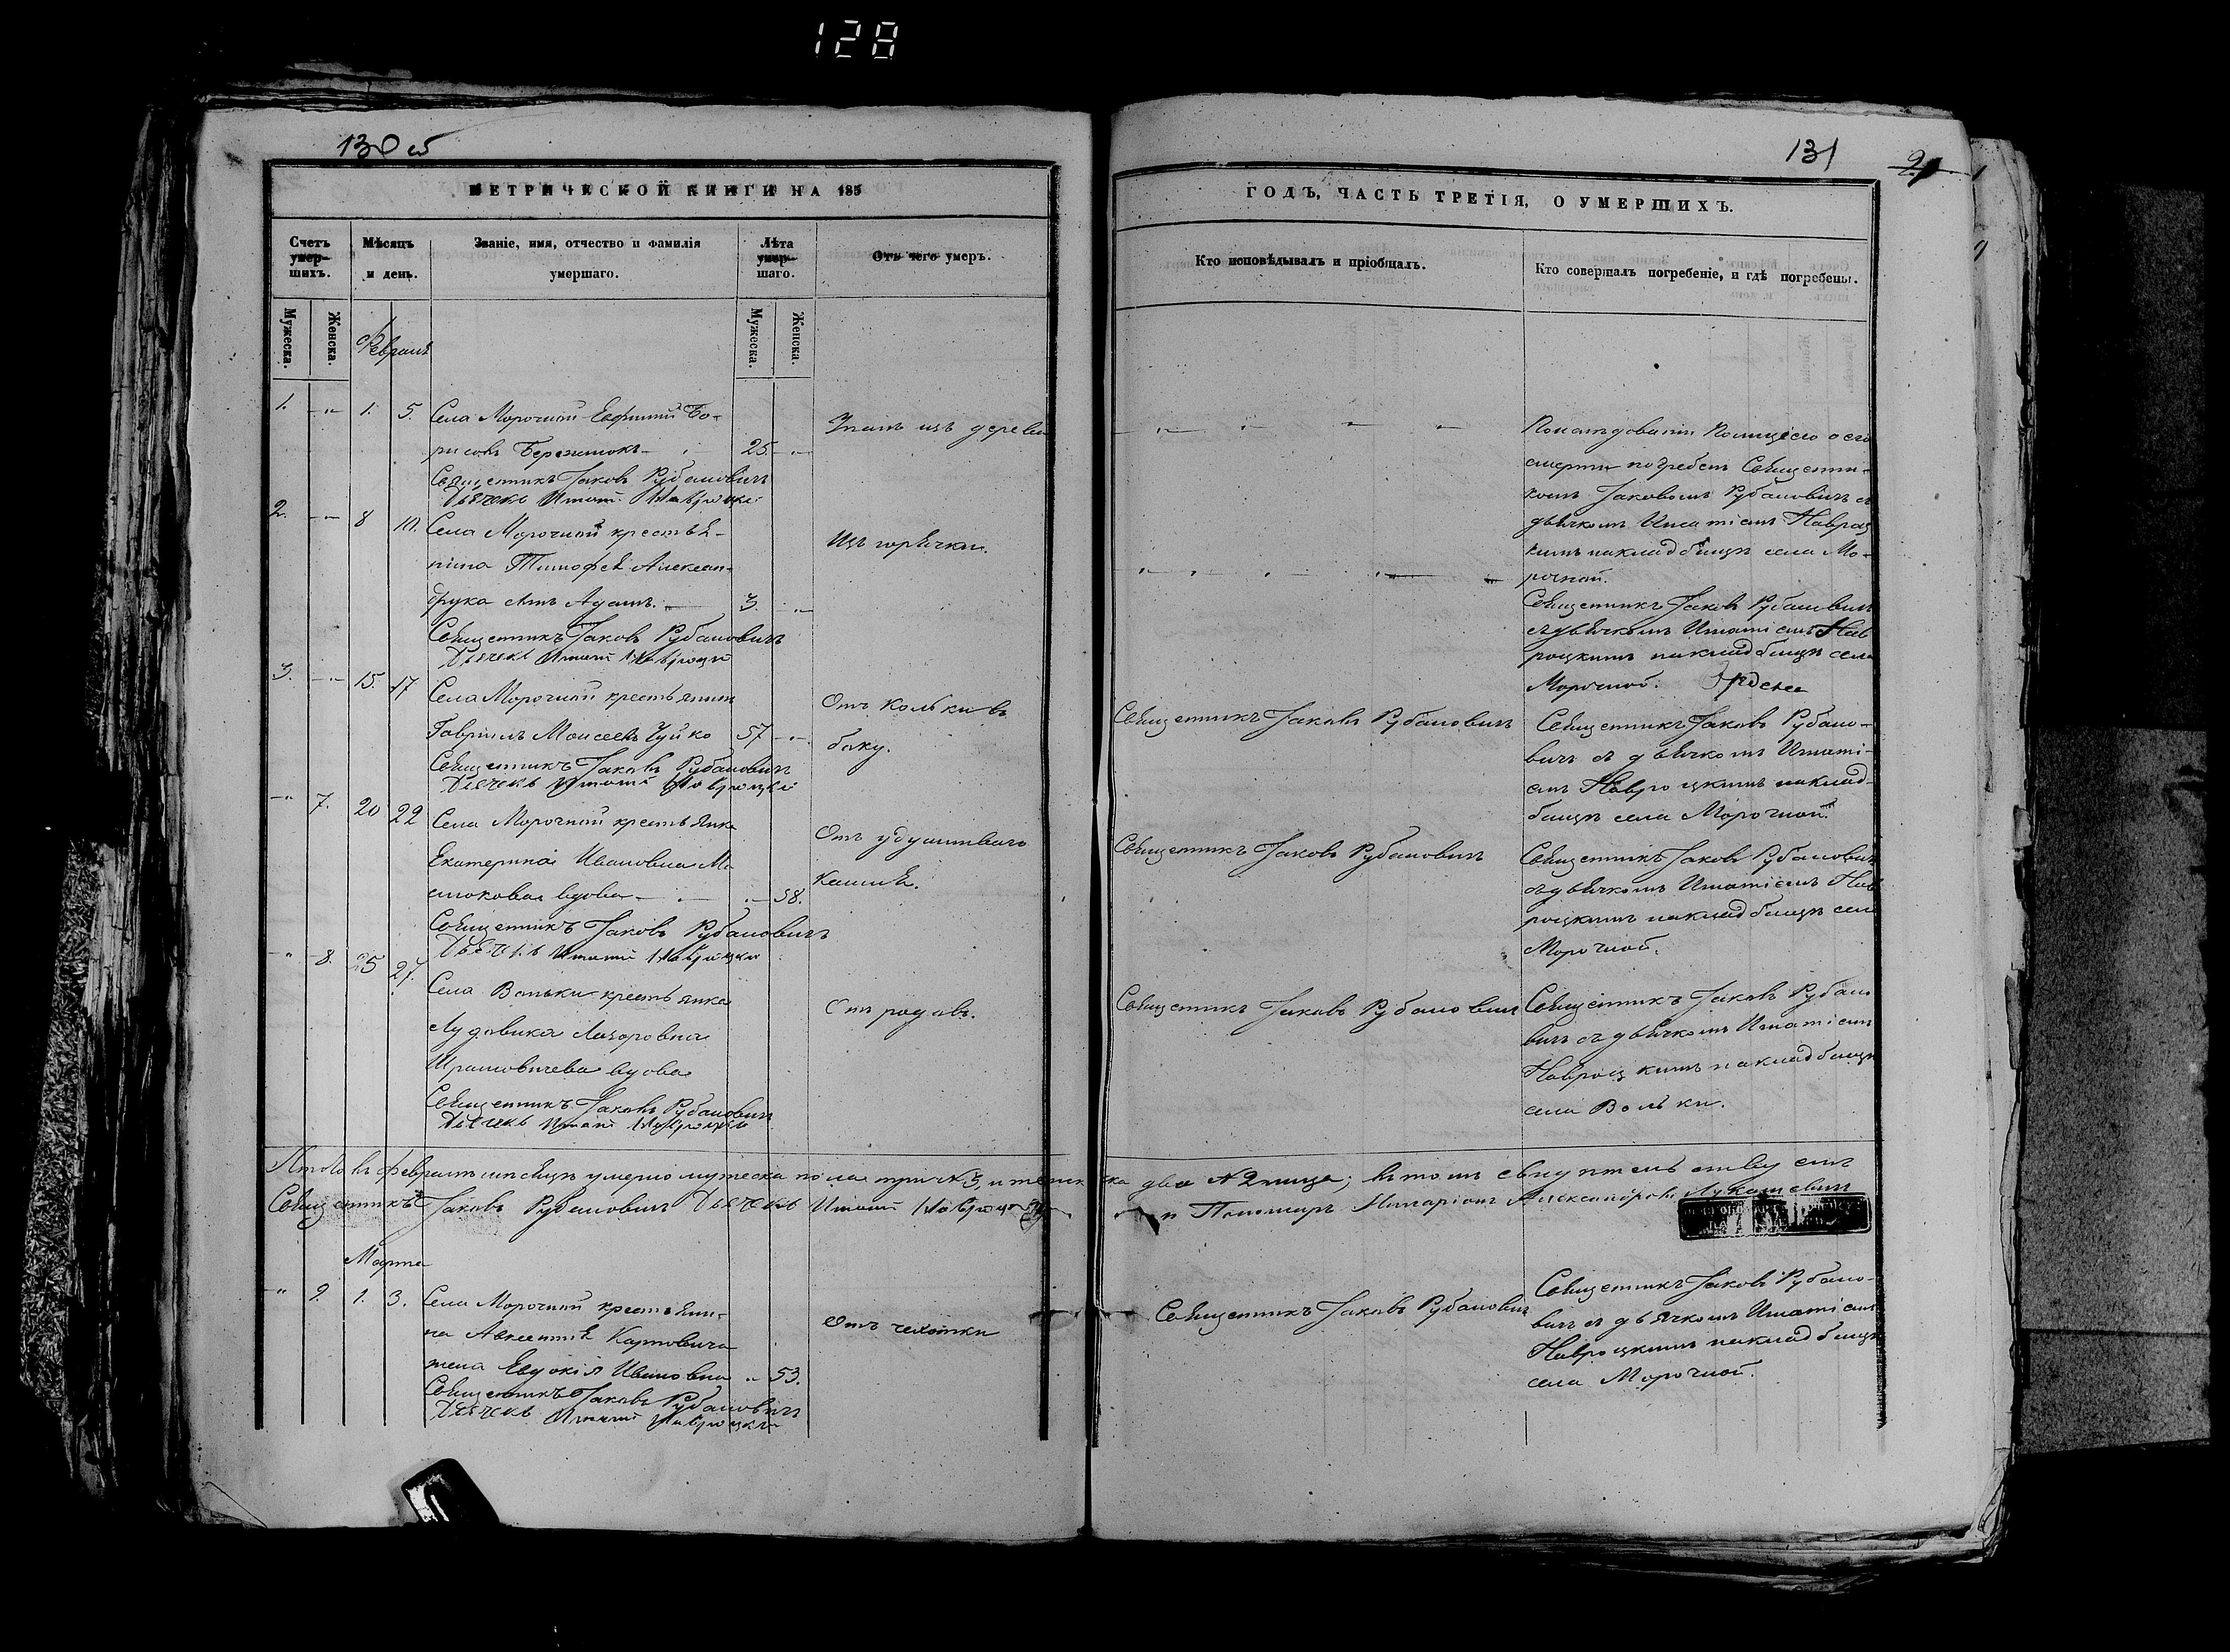 128
130 об
МЕТРИЧЕСКОЙ КНИГИ НА 185
Счетъ умер-шихъ.
Мѣсяцъ и день.
Званіе, имя, отчество и фамилія умершаго.
Лѣта умер-шаго.
Отъ чего умеръ.
Мужеска.
Женска.
Мужеска.
Женска.
Февраль
1. 1. 5. Села Морочной Евфимій Бо-
рисовъ Бережнюкъ 25.
Упалъ изъ дерева
Священникъ Іаковъ Рубановичъ
Дьячекъ Игнатій Навроцкій
2. 8 10. Села Морочной крестья-
нина Тимофея Алексан-
друка сынъ Адамъ. 3.
Изъ горячки.
Священникъ Іаковъ Рубановичъ
Дьячекъ Игнатій Навроцкій
3. 15. 17 Села Морочной крестьянинъ
Гавріилъ Моисеевъ Чуйко 57
Отъ кольки въ
боку.
Священникъ Іаковъ Рубановичъ
Дьячекъ Игнатій Навроцкій
7. 20 22 Села Морочной крестьянка
Екатерина Ивановна
вдова 58.
Отъ удушливаго
кашля.
Священникъ Іаковъ Рубановичъ
Дьячекъ Игнатій Навроцкій
8. 25 27. Села Вольки крестьянка
Лудовика Лазоровна
вдова
Отъ родовъ.
Священникъ Іаковъ Рубановичъ
Дьячекъ Игнатій Навроцкій
Итого въ февралѣ мѣсяцѣ умерло мужеска пола три № 3, и женска
Священникъ Іаковъ Рубановичъ Дьячекъ Игнатій Навроцкій
Марта
9. 1. 3. Села Морочной крестьяни-
на Авксентія Карповича
жена Евдокія Ивановна 53.
Отъ чахотки
Священникъ Іаковъ Рубановичъ
Дьячекъ Игнатій Навроцкій
131
ГОДЪ, ЧАСТЬ ТРЕТІЯ, О УМЕРШИХЪ.
Кто исповѣдывалъ и пріобщалъ.
Кто совершалъ погребеніе, и гдѣ погребены.
По изслѣдованіи Полиціею о его
смерти погребенъ Священни-
комъ Іаковомъ Рубановичъ съ
дьячкомъ Игнатіемъ Навроц
кимъ на кладбищѣ села Мо-
рочной.
Священникъ Іаковъ Рубановичъ
съ дьячкомъ Игнатіемъ Нав
роцкимъ на кладбищѣ села
Морочной.
Священникъ Іаковъ Рубановичъ
Священникъ Іаковъ Рубано-
вичъ съ дьячкомъ Игнаті-
емъ Навроцкимъ на клад-
бищѣ села Морочной.
Священникъ Іаковъ Рубановичъ
Священникъ Іаковъ Рубановичъ
съ дьячкомъ Игнатіемъ Нав
роцкимъ на кладбищѣ села
Морочной.
Священникъ Іаковъ Рубановичъ
Священникъ Іаковъ Рубано
вичъ съ дьячкомъ Игнатіемъ
Навроцкимъ на кладбищѣ
села Вольки.
два № 2 лица; въ томъ свидѣтельствуемъ
и Пономарь Иларіонъ Александровъ Лукашевичъ
Священникъ Іаковъ Рубановичъ
Священникъ Іаковъ Рубано-
вичъ съ дьячкомъ Игнатіемъ
Навроцкимъ на кладбищѣ
села Морочной.